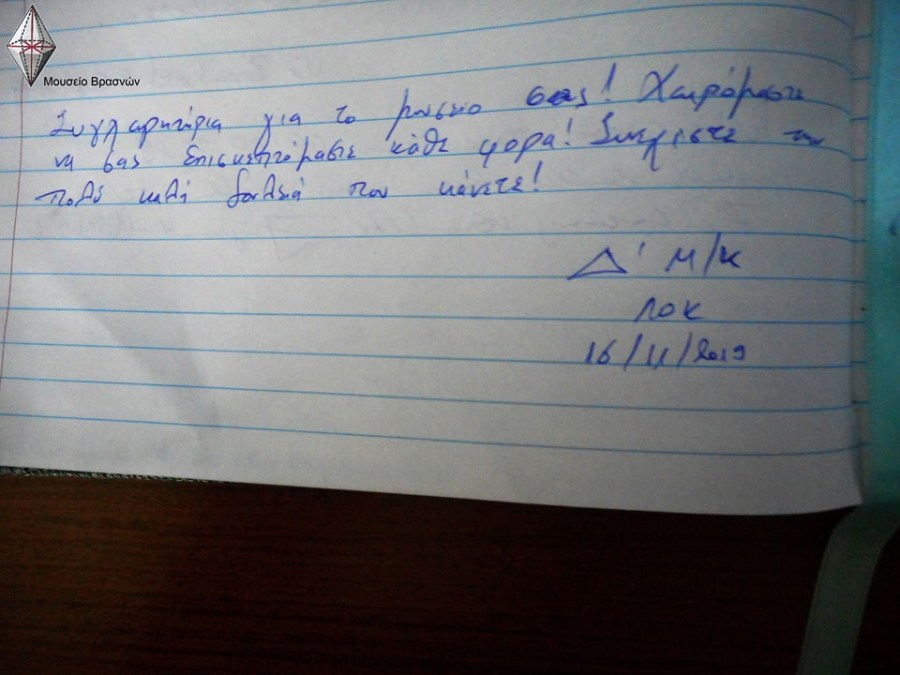 Μουσείο Βρασνών
Συγχαρητήρια για το μουσείο σας! Χαιρόμαστε
να σας επισκεπτόμαστε κάθε φορά! Συνεχίστε την
πολύ καλή δουλειά που κάνετε!
Δ' Μ/Κ
ΛΟΚ
16/11/2019